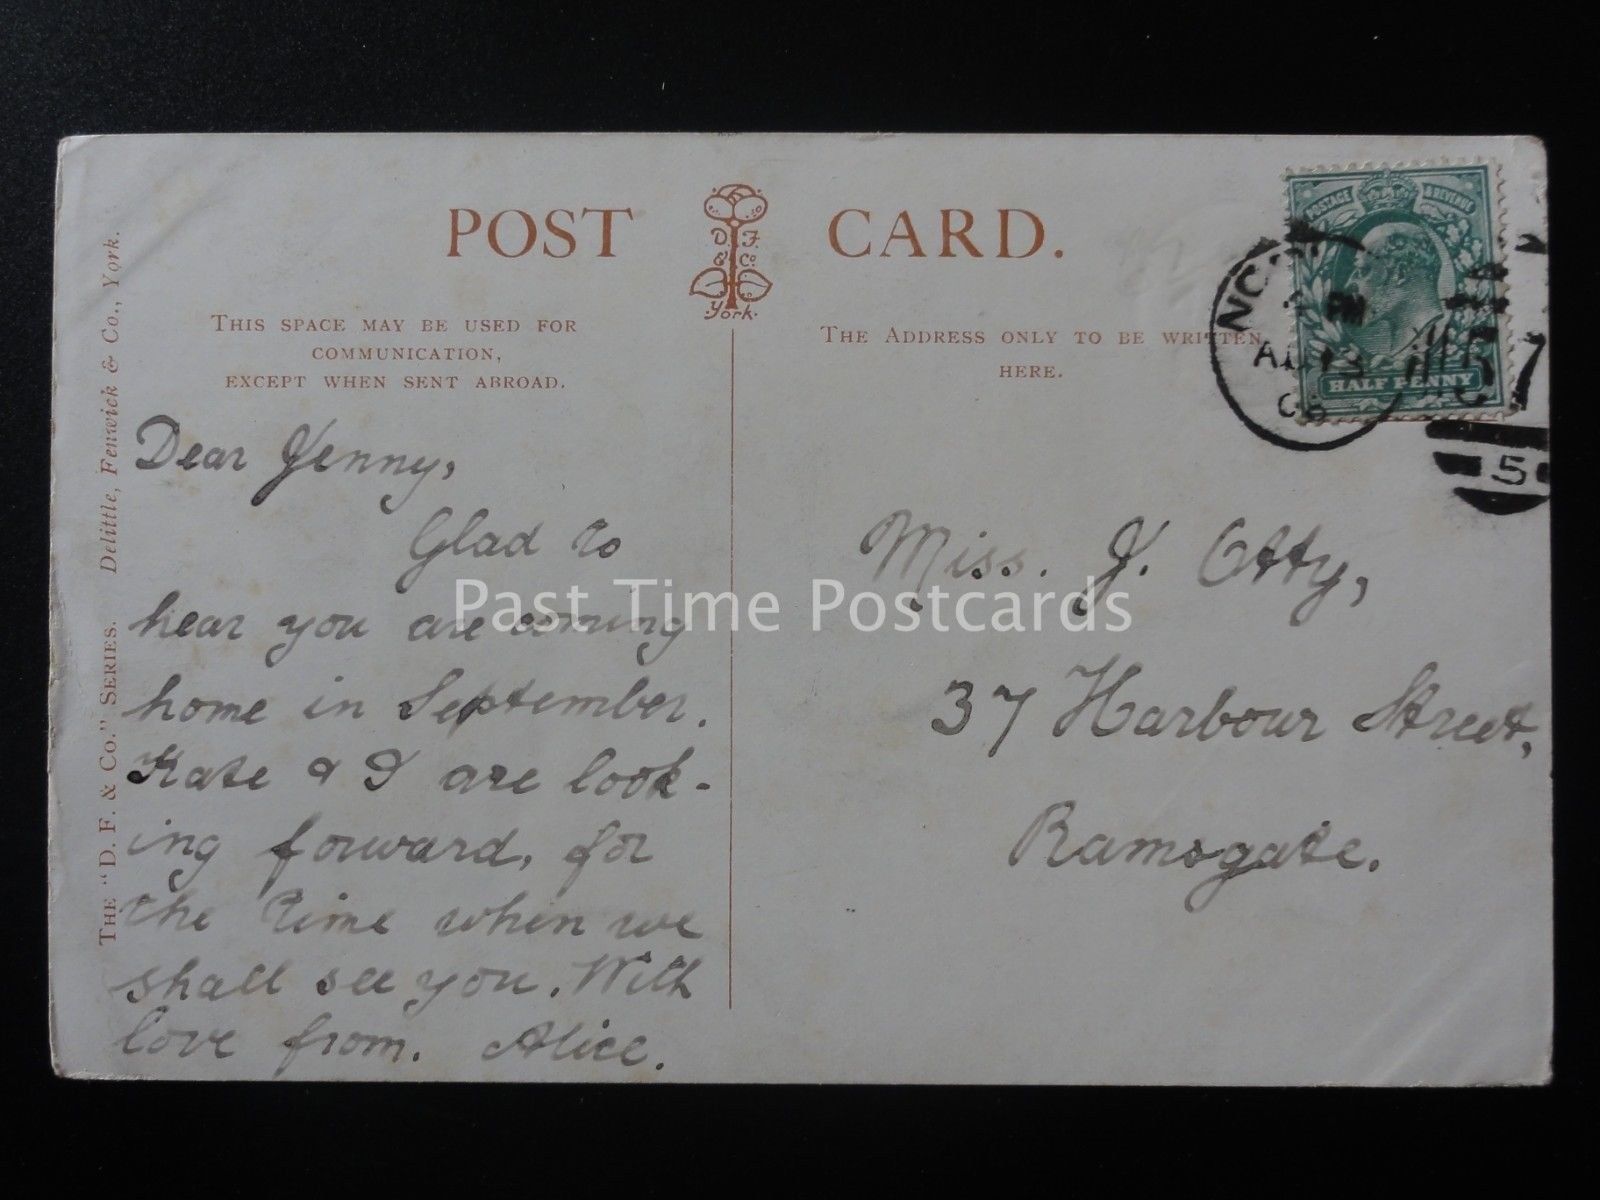 POST CARD.
D. F.
& Co.
York.
THIS SPACE MAY BE USED FOR
COMMUNICATION,
EXCEPT WHEN SENT ABROAD.
THE ADDRESS ONLY TO BE WRITTEN
HERE.
THE "D. F. & CO." SERIES. Delittle, Fenwick & Co., York.
Dear Jenny,
Glad to
hear you are coming
home in September.
Kate & I are look-
ing forward, for
the time when we
shall see you. With
love from. Alice.
POSTAGE & REVENUE
HALF PENNY
PM
5
Miss. J. Otty,
37 Harbour Street,
Ramsgate.
Past Time Postcards